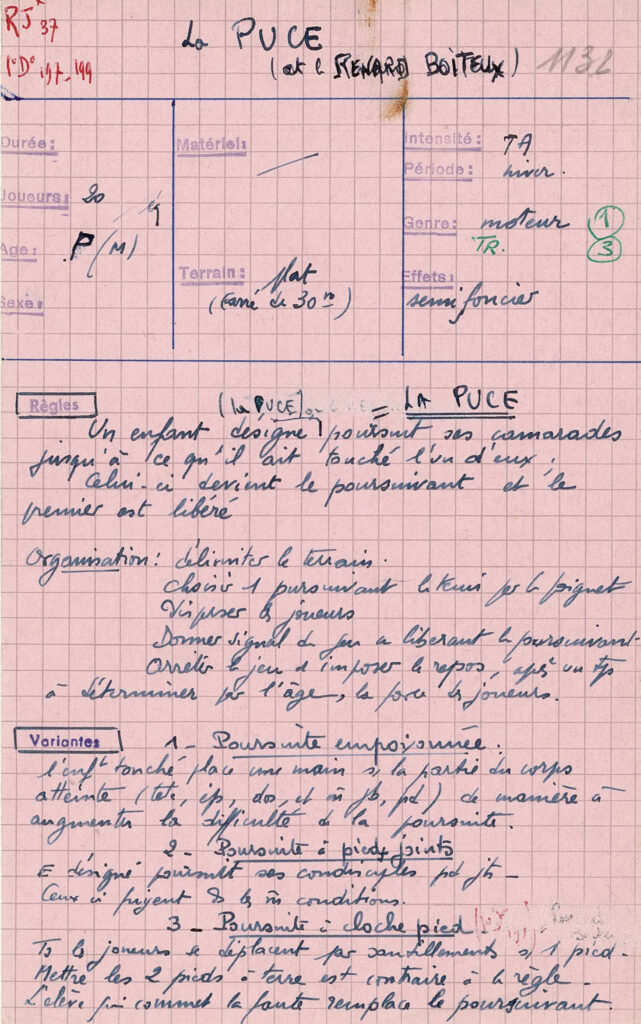 RJ 37
La PUCE
(et le RENARD BOITEUX)
1132
1° D° 197-199
Durée:
Matériel:
Intensité: TA
Période: hiver.
Joueurs: 20
Genre: moteur 1
TR. 3
Age: P (M)
Terrain: plat
(Carré de 30 m)
Effets:
semi foncier
Sexe:
Règles
(La PUCE) = LA PUCE
Un enfant désigné poursuit ses camarades
jusqu'à ce qu'il ait touché l'un d'eux.
Celui-ci devient le poursuivant et le
premier est libéré
Organisation: délimiter le terrain.
choisir 1 poursuivant le tenir par le poignet
Disperser les joueurs
Donner signal du jeu en libérant le poursuivant
Arrêter le jeu et imposer le repos, après un tps
à déterminer par l'âge, la force des joueurs.
Variantes
1 - Poursuite empoisonnée:
l'enft touché place une main s/ la partie du corps
atteinte (tête, dos, et m̄ jb, pd) de manière à
augmenter la difficulté de la poursuite.
2 - Poursuite à pieds joints
E désigné poursuit ses condisciples pd jts -
Ceux ci fuient ds les m̄ conditions.
3 - Poursuite à cloche pied
Ts les joueurs se déplacent par sautillements s/ 1 pied.
Mettre les 2 pieds à terre est contraire à la règle -
L'élève qui commet la faute remplace le poursuivant.